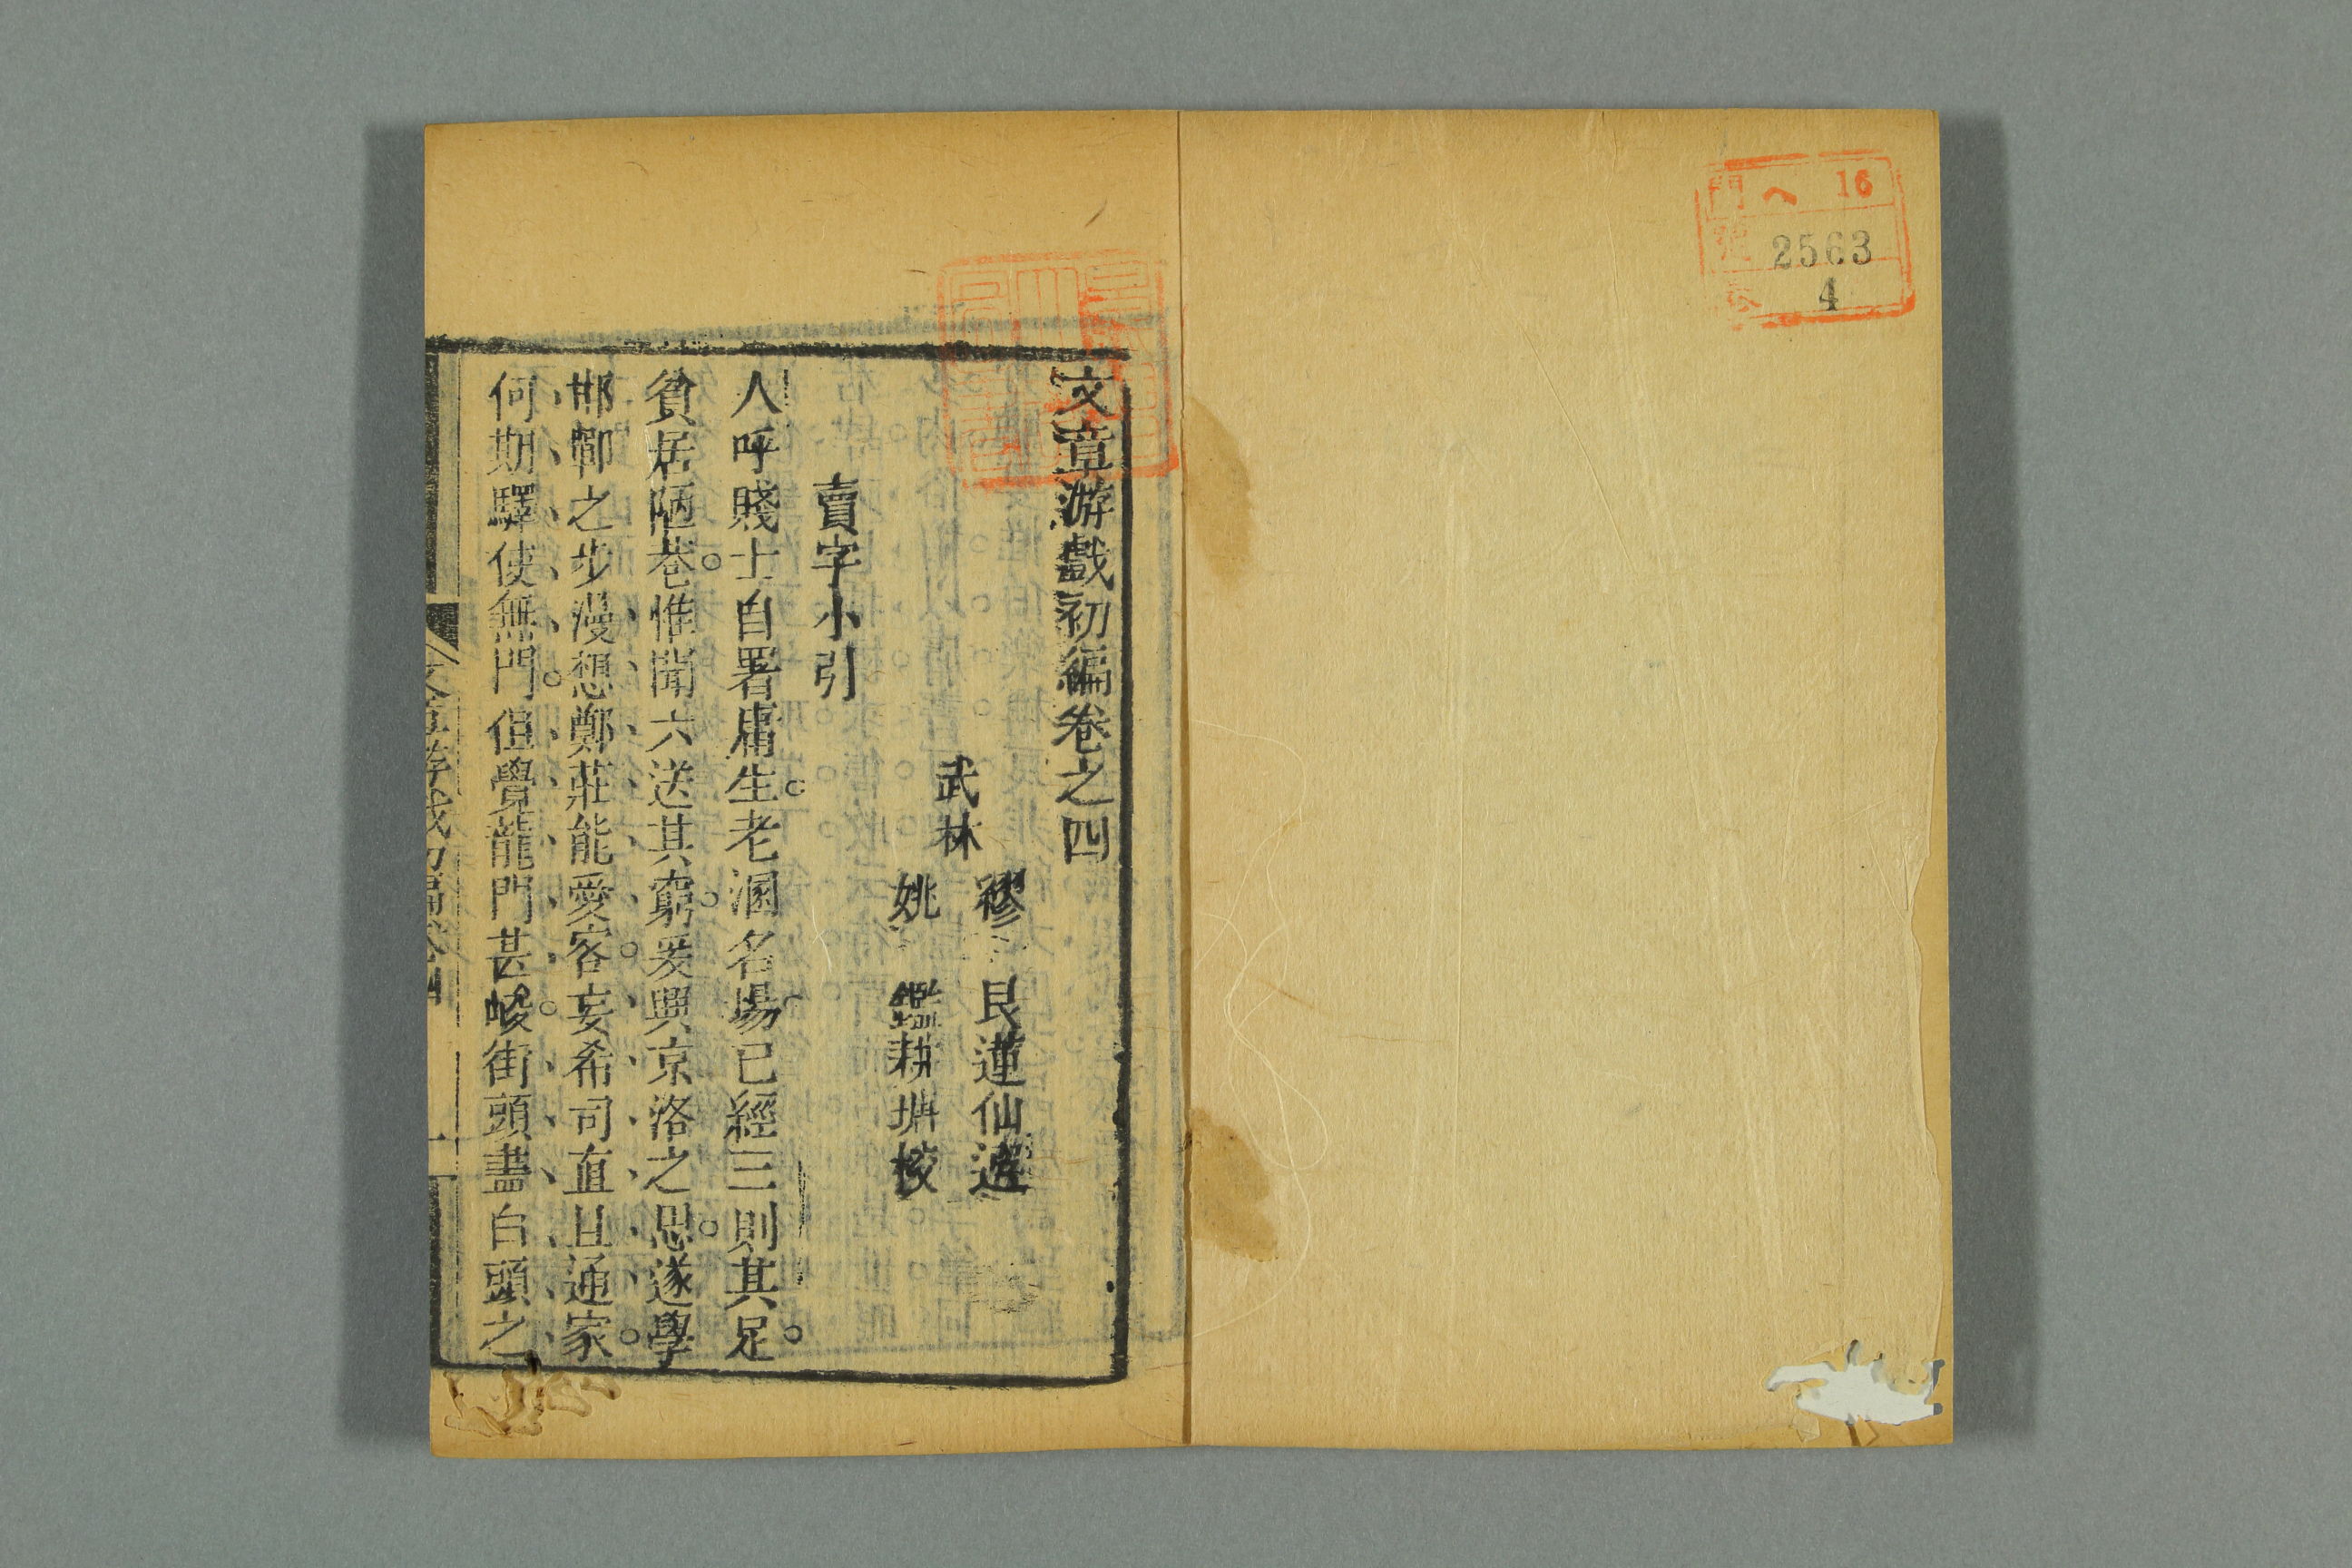 門 ヘ 16
號 2563
卷 4
文章游戲初編卷之四
武林
繆艮蓮仙選
姚鑑耕堋校
賣字小引
人呼賤士自署庸生。老溷名場已經三則其足。
貧居陋巷。惟聞六送其窮。爰興京洛之思。遂學
邯鄲之步漫想鄭莊能愛客。妄希司直且通家。
何期驛使無門。但覺龍門甚峻。街頭盡白頭之
文章游戲初編卷四
一